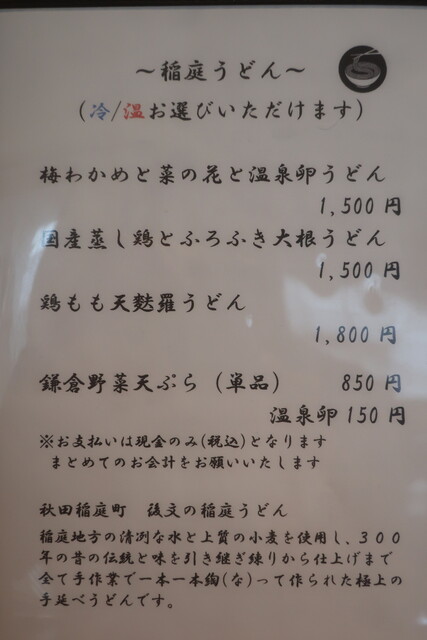 ～稲庭うどん～
(冷/温お選びいただけます)
梅わかめと菜の花と温泉卵うどん
1,500 円
国産蒸し鶏とふろふき大根うどん
1,500 円
鶏もも天麩羅うどん
1,800 円
鎌倉野菜天ぷら（単品） 850 円
温泉卵 150 円
※お支払いは現金のみ(税込)となります
まとめてのお会計をお願いいたします
秋田稲庭町 後文の稲庭うどん
稲庭地方の清冽な水と上質の小麦を使用し、３００
年の昔の伝統と味を引き継ぎ練りから仕上げまで
全て手作業で一本一本綯(な)って作られた極上の
手延べうどんです。